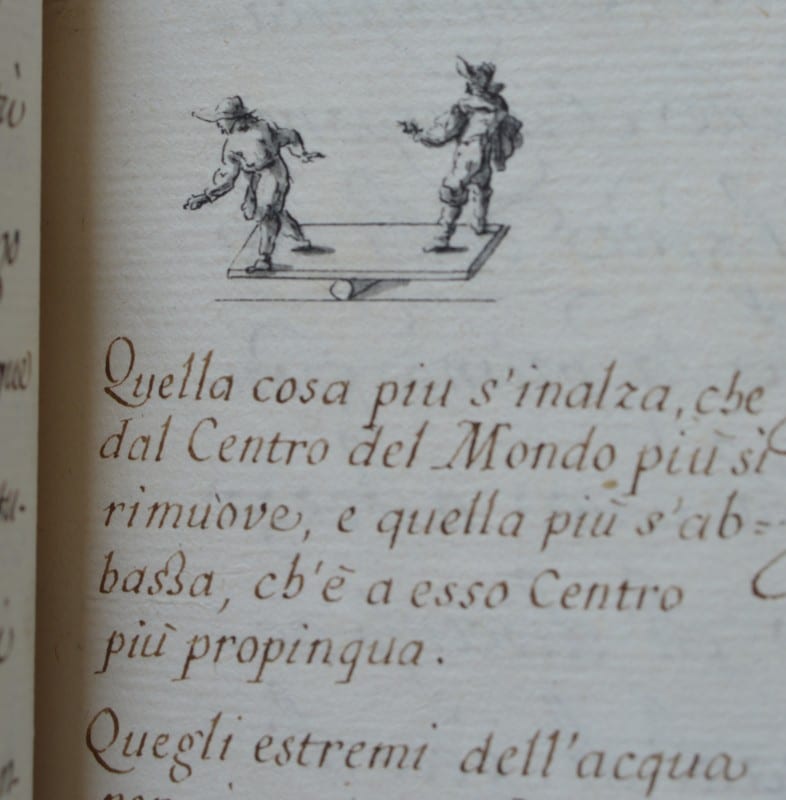 Quella cosa piu s'inalza, che
dal Centro del Mondo più si
rimuove, e quella più s'ab=
bassa, ch'è a esso Centro
più propinqua.
Quegli estremi dell'acqua